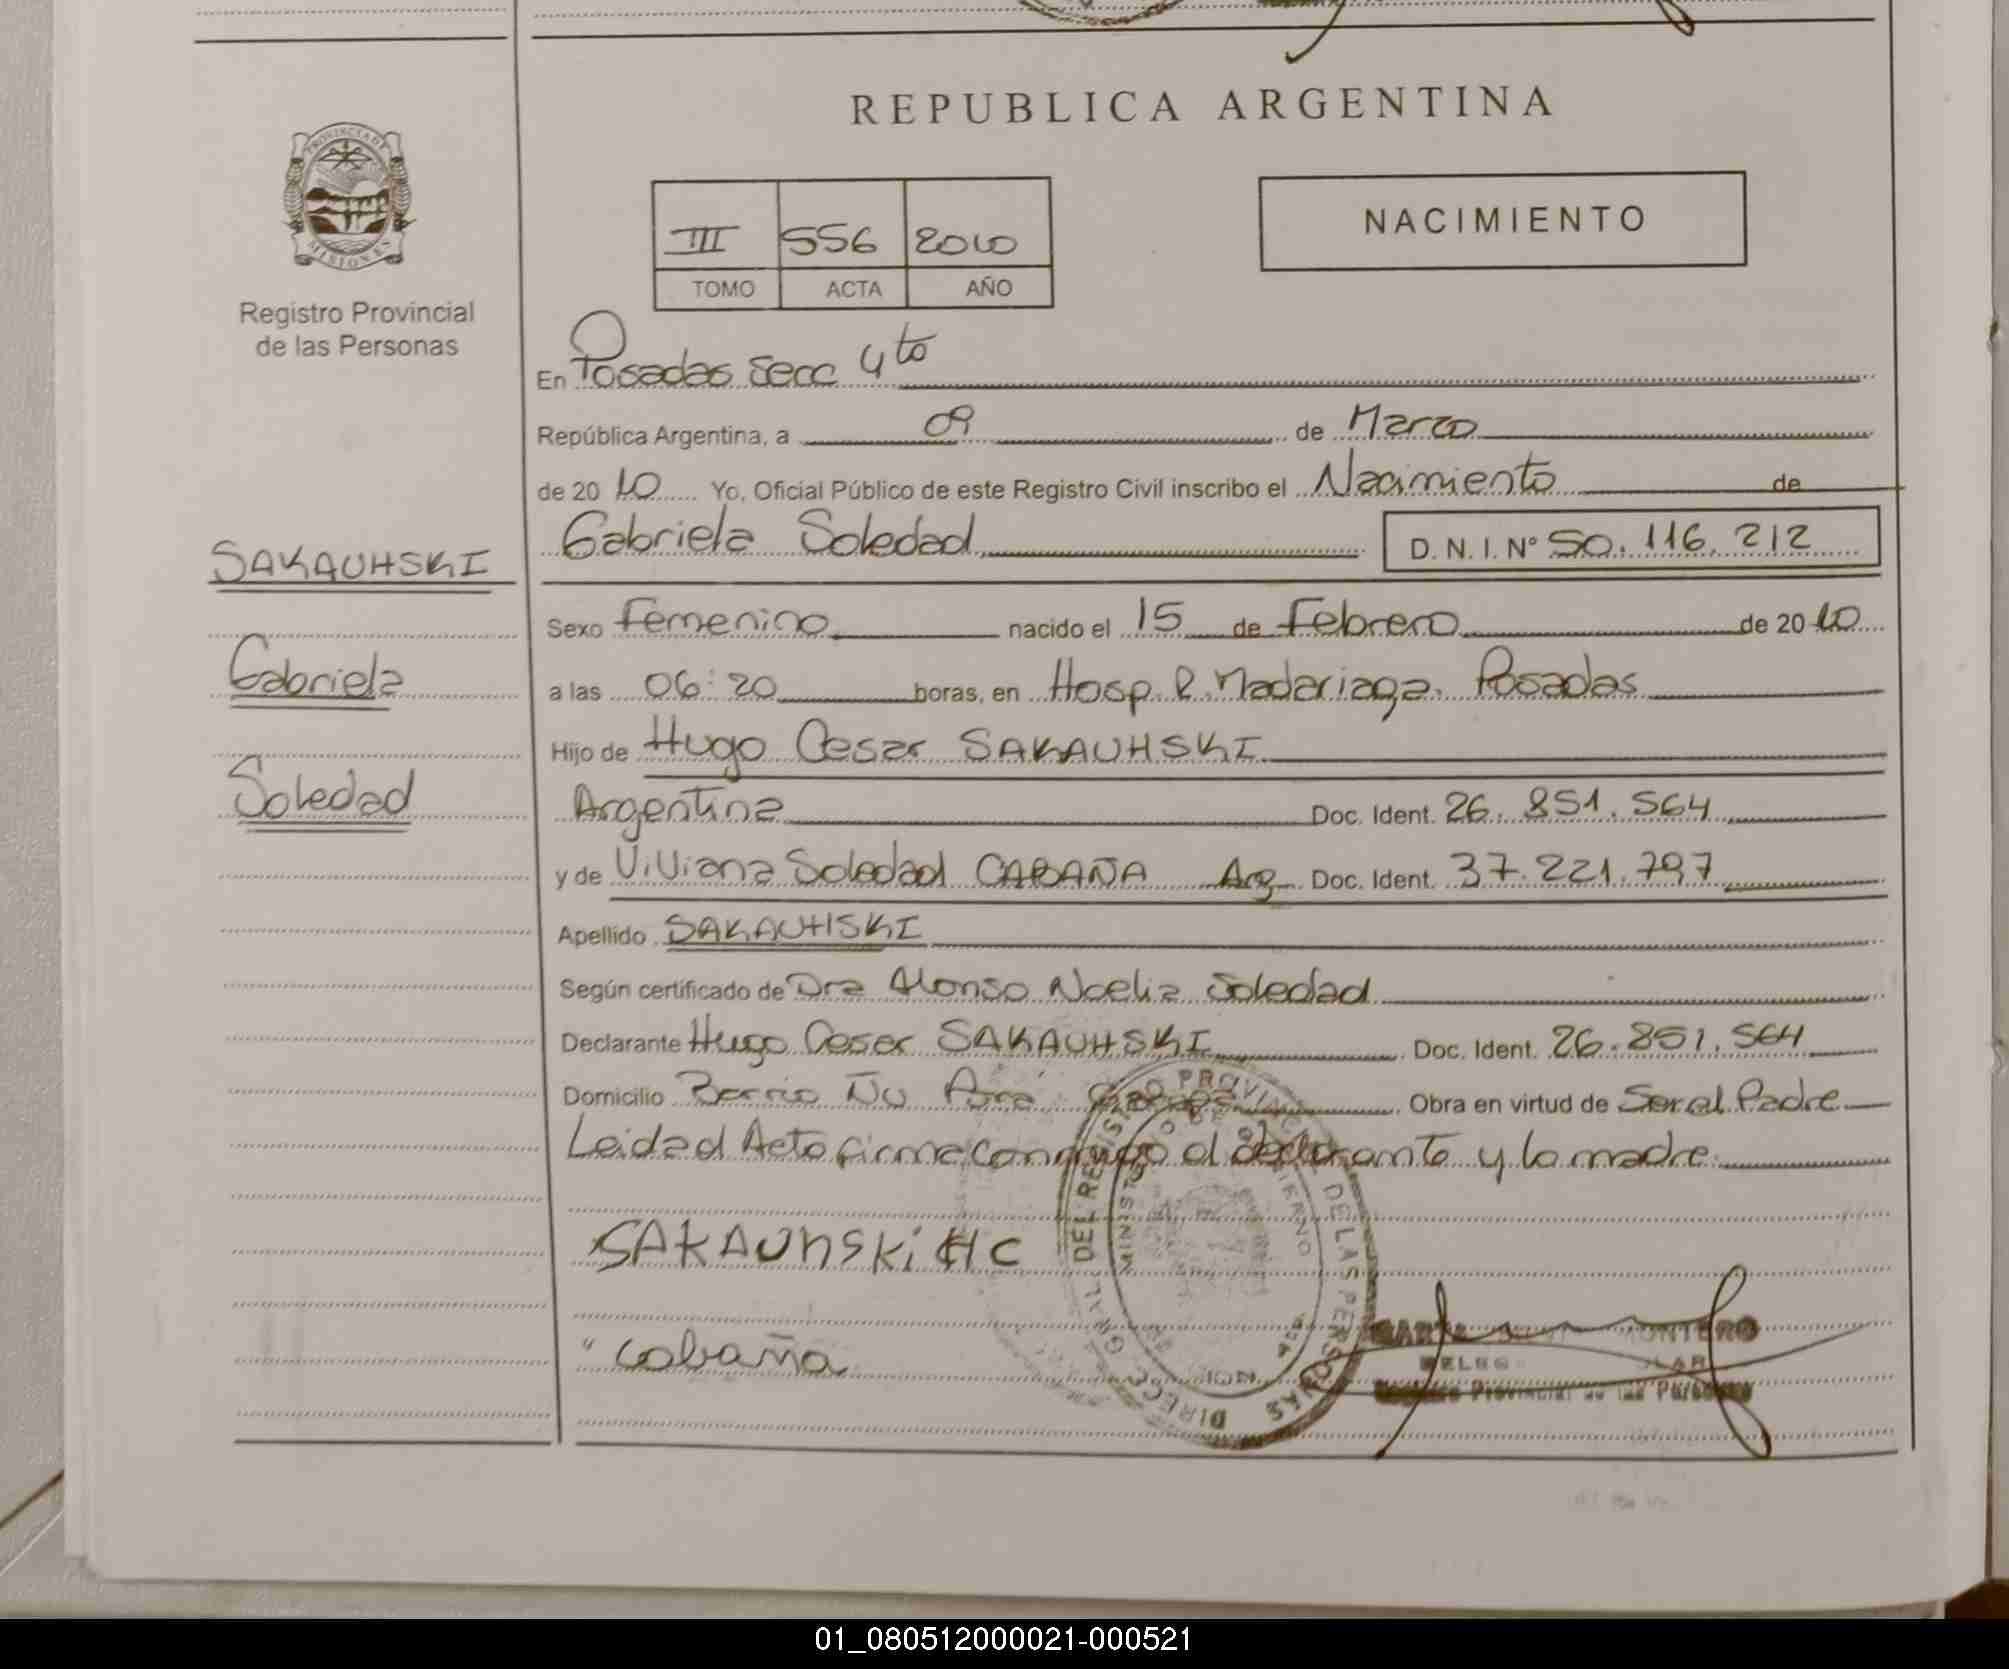 REPUBLICA ARGENTINA
PROVINCIA DE MISIONES
Registro Provincial
de las Personas
III 556 2010
TOMO ACTA AÑO
NACIMIENTO
En Posadas Secc 4to
República Argentina, a 09 de Marzo
de 2010 Yo, Oficial Público de este Registro Civil inscribo el Nacimiento de
Gabriela Soledad D. N. I. Nº 50.116.212
SAKAUHSKI
Gabriela
Soledad
Sexo Femenino nacido el 15 de Febrero de 2010
a las 06:20 horas, en Hosp. R. Madariaga. Posadas
Hijo de Hugo Cesar SAKAUHSKI
Argentina Doc. Ident. 26.851.564
y de Viviana Soledad CABAÑA Arg Doc. Ident. 37.221.797
Apellido SAKAUHSKI
Según certificado de Dra Alonso Noelia Soledad
Declarante Hugo Cesar SAKAUHSKI Doc. Ident. 26.851.564
Domicilio Barrio Ñu Porá Obra en virtud de Ser el Padre
Leidad Acta firma conmigo el declarante y la madre
SAKAUhSKi HC
cabaña
DIRECC GRAL DEL REGISTRO PROVINCIAL DE LAS PERSONAS
MONTERO
Registro Provincial de las Personas
01_080512000021-000521